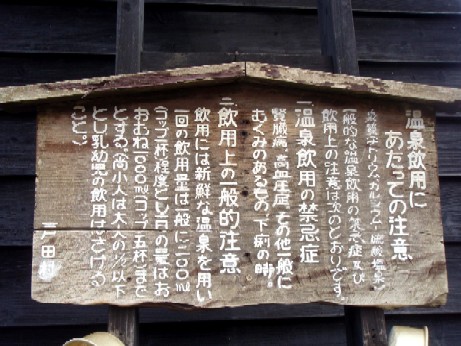 温泉飲用に
あたっての注意
泉質ナトリウム・カルシウム―硫酸塩温泉で
一般的な温泉飲用の禁忌症及び
飲用上の注意は次のとおりです。
一、温泉飲用の禁忌症
腎臓病、高血圧症、その他一般に
むくみのあるもの、下痢の時。
二、飲用上の一般的注意
飲用には新鮮な温泉を用い
一回の飲用量は一般に一〇〇ml
(コップ一杯程度)とし一日の量はお
おむね一〇〇〇ml(コップ五杯)まで
とする。尚小人は大人の½以下
とし乳幼児の飲用はさける
こと。
戸田村